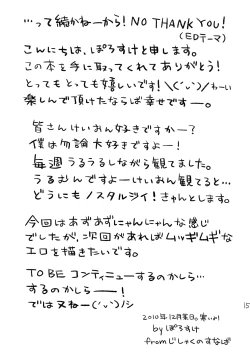 …って続かねーから! NO THANK YOU!
(EDテーマ)
こんにちは、ぽるすけと申します。
この本を手に取ってくれてありがとう!
とってもとっても嬉しいです! \(´ヮ`)/わーい
楽しんで頂けたならば幸せですー。
皆さんけいおん好きですかー?
僕は勿論大好きですよー!
毎週うるうるしながら観てました。
うるむんですよーけいおん観てると…
どうにもノスタルジイ!きゃんとします。
今回はあずあずにゃんにゃんな感じ
でしたが、次回があればムッギムギな
エロを描きたいです。
TO BE コンティニューするのかしら…
するのかしらーー!
では又ねー(´ヮ`)ノシ
2010年12月某日。寒いよ!
by ぽるすけ
from じしゃくのすなば
15